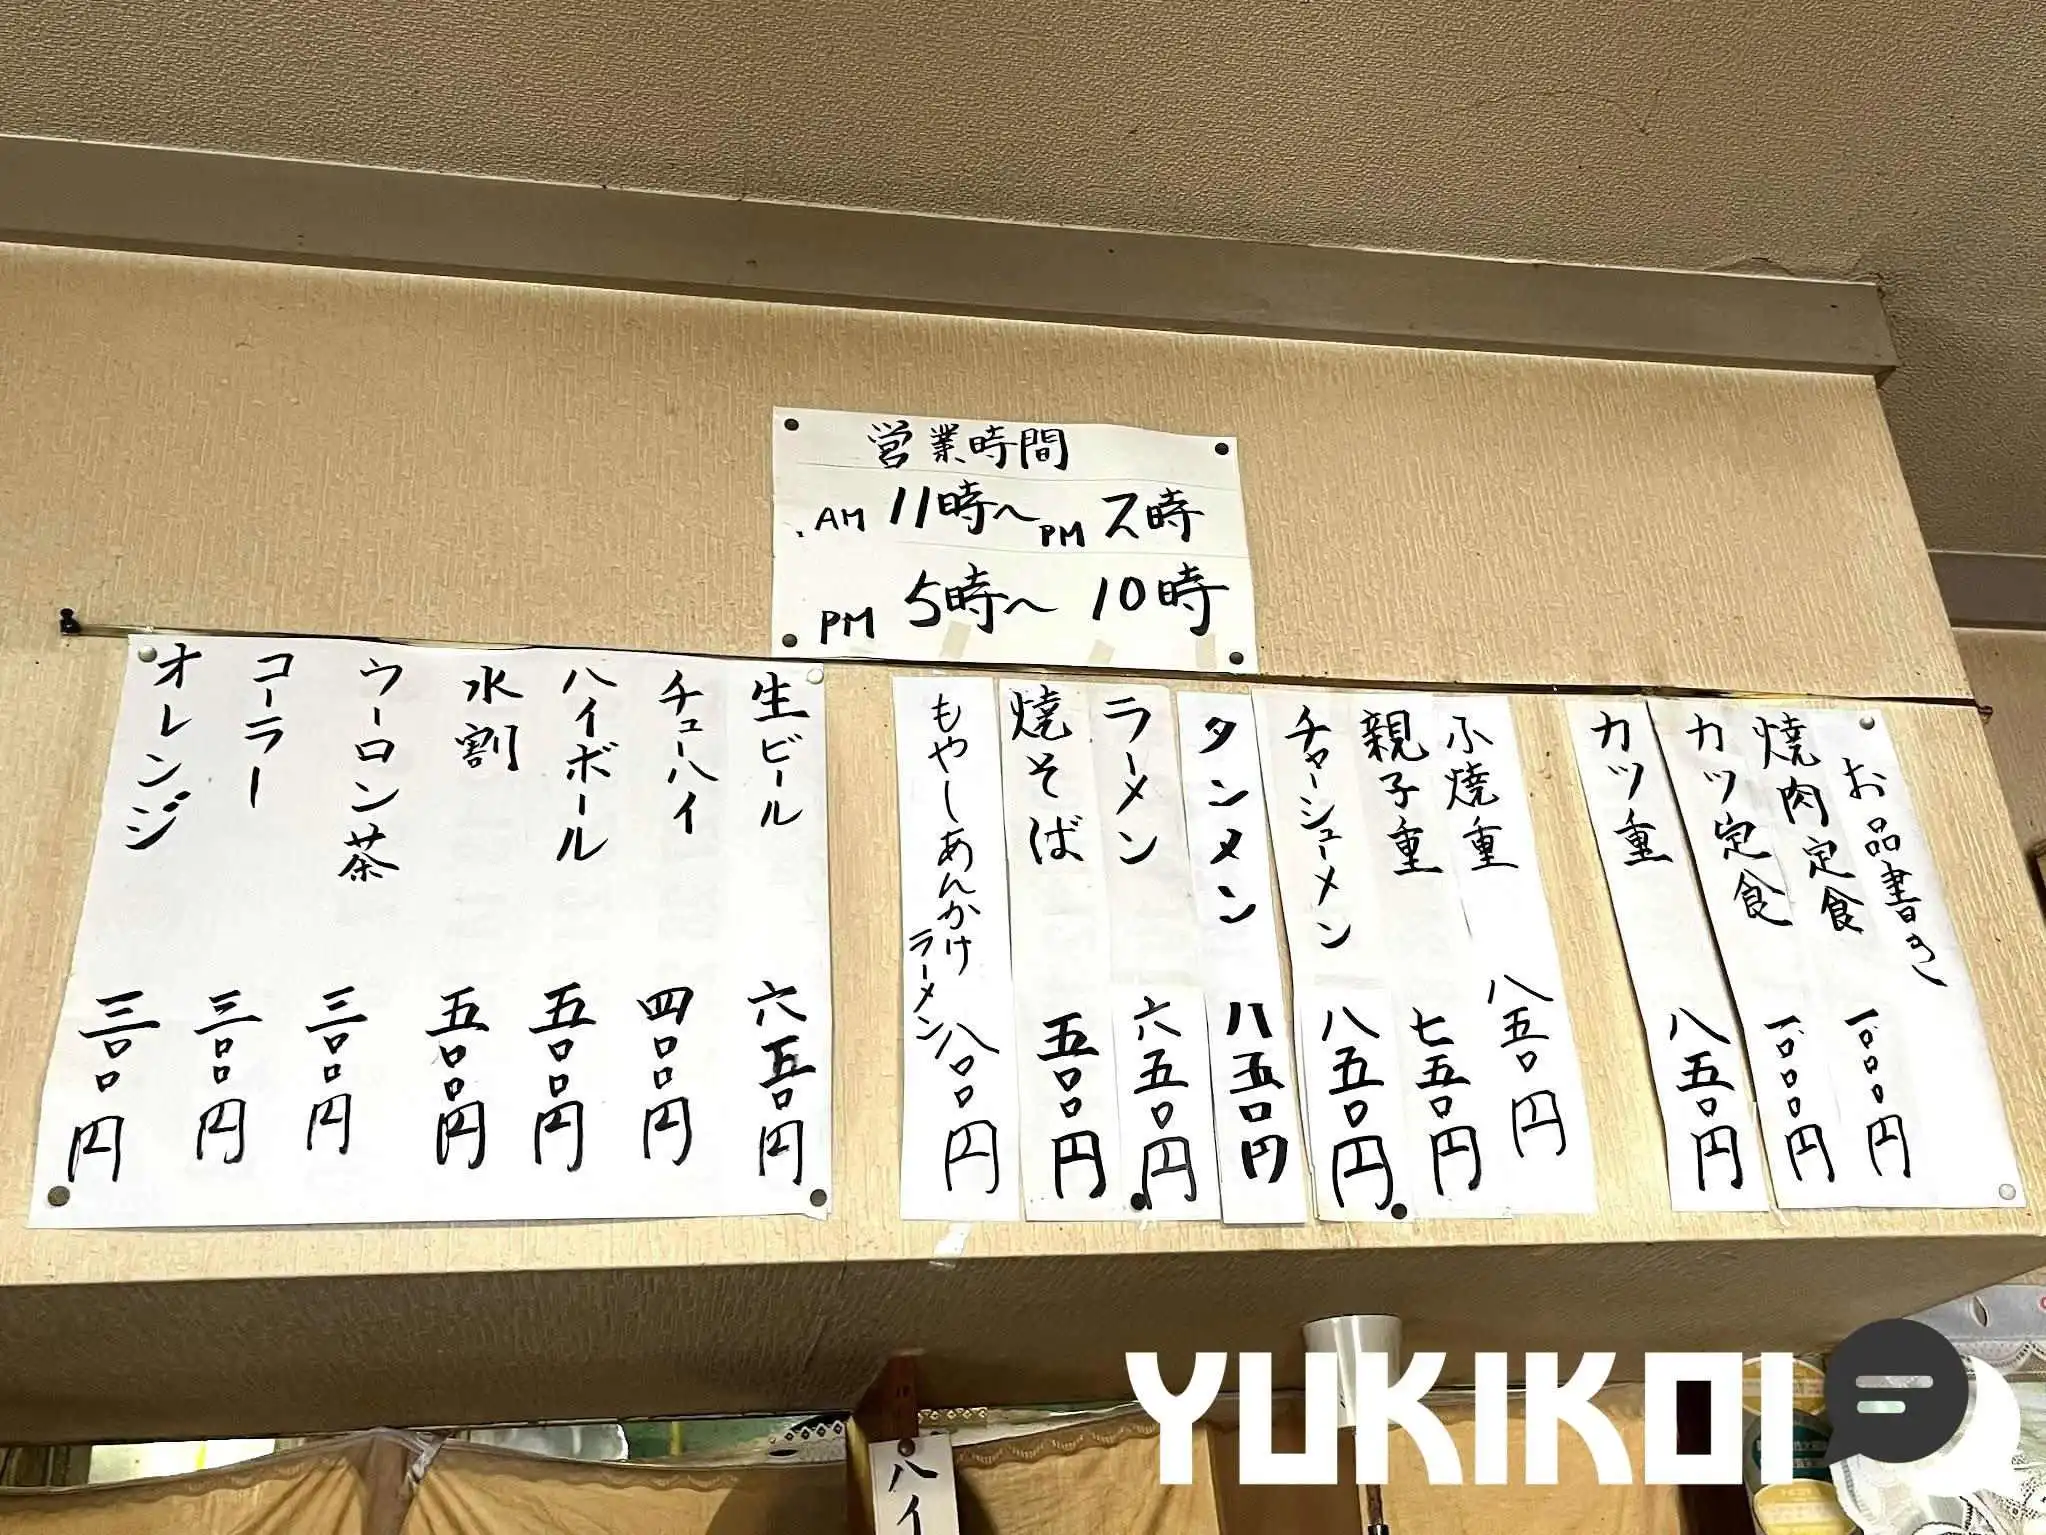 営業時間
AM 11時〜PM 2時
PM 5時〜10時
お品書き
焼肉定食 一〇〇〇円
カツ定食 一〇〇〇円
カツ重 八五〇円
小焼重 八五〇円
親子重 七五〇円
チャーシューメン 八五〇円
タンメン 八五〇円
ラーメン 六五〇円
焼そば 五〇〇円
もやしあんかけラーメン 八〇〇円
生ビール 六五〇円
チューハイ 四〇〇円
ハイボール 五〇〇円
水割 五〇〇円
ウーロン茶 三〇〇円
コーラー 三〇〇円
オレンジ 三〇〇円
ハイ
YUKIKOI